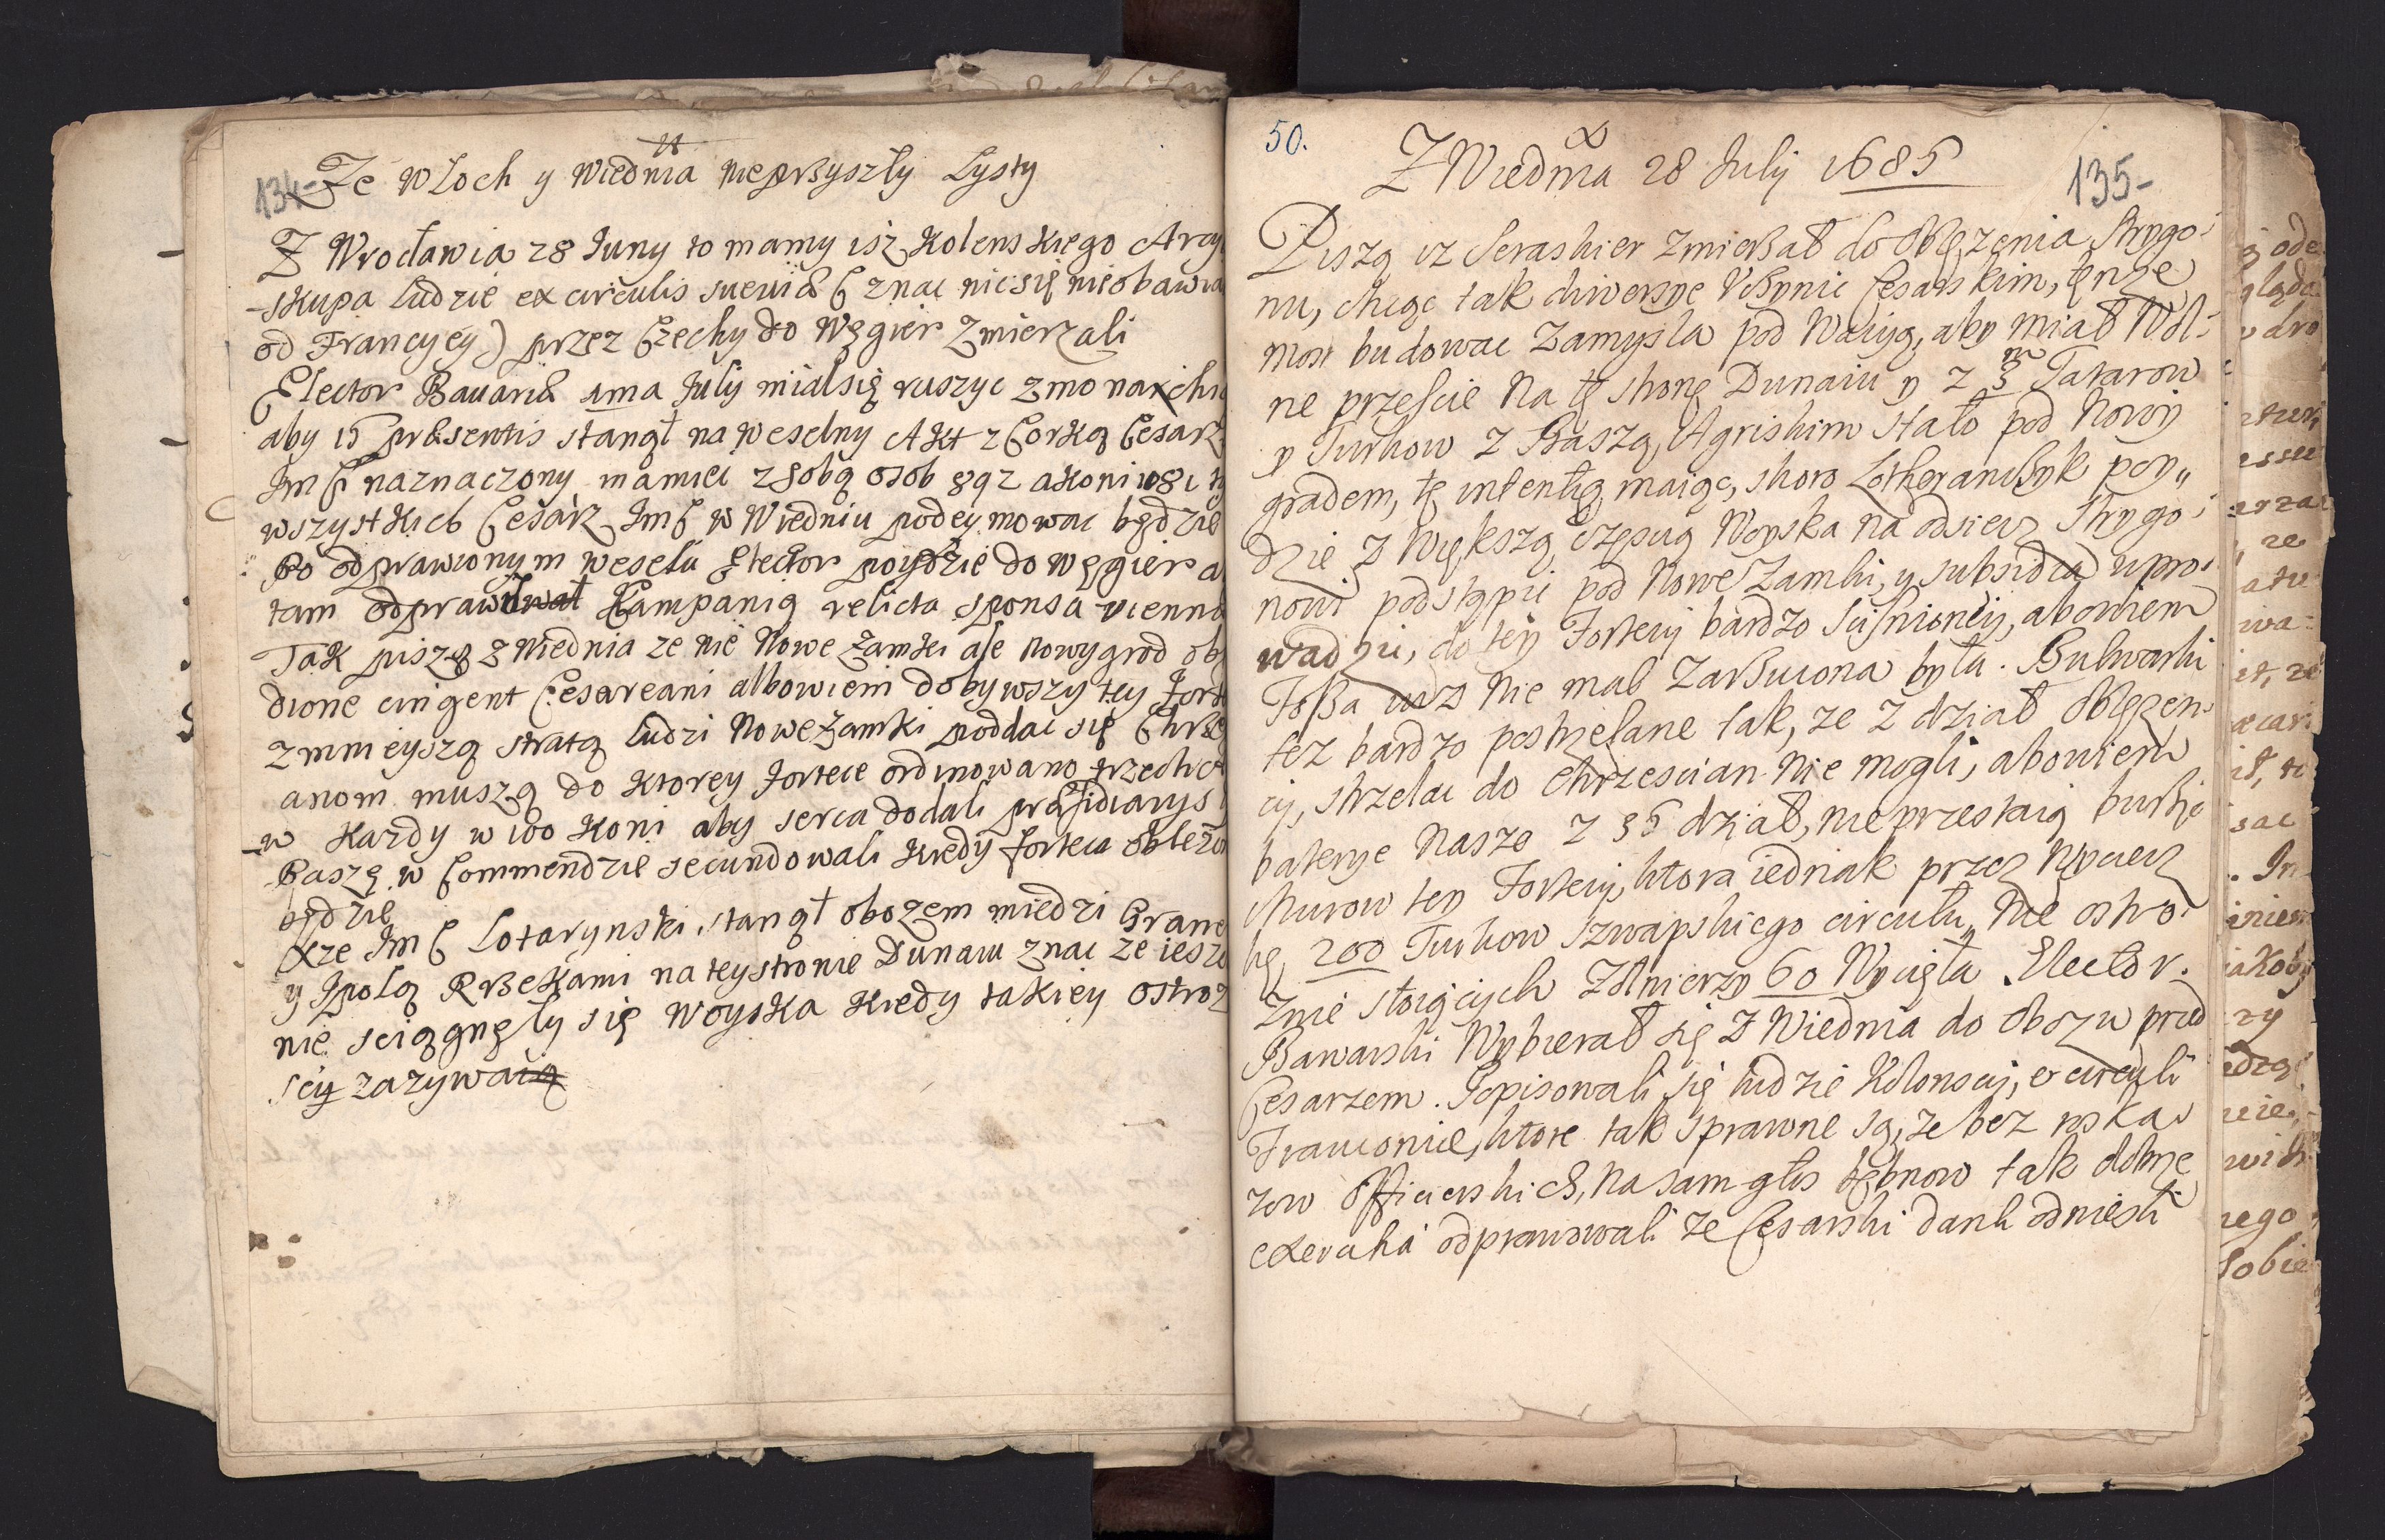 134-
Ze Wloch y Wiednia nieprzyszły Lysty
Z Wrocławia 28 Juny to mamy isz Kolenskiego Arcy
-skupa ludzie ex circulis sueuiæ (znac nic się nieobawia
od Francyey) przez Czechy do Węgier zmierzali
Elector Bauariæ 1ma July mialsię ruszyc z monarchi
aby 15 præsentis stanął na weselny Akt z Corką Cesarz
Jm C naznaczony mamiec z sobą osob 892 akoni 1081
wszystkich Cesarz Jm C w Wiedniu podeymowac będzie
Po odprawionym weselu Elector poydzie do Węgier a
tam odprawował Campanią relicta sponsa vienna
Tak piszą z Wiednia ze nie Nowe Zamki ale Nowygrod ob
dione cingent Cesareani albowiem dobywszy tey Fort
z mnieyszą stratą ludzi Nowe Zamki poddac się Chrze
anom muszą do ktorey fortece ordinowano trzech
w Kazdy w 100 Koni aby serca dodali præsidiarys
Baszę w Commendzie secundowali kiedy forteca oblezo
będzie
Xze Jm C Lotarynski stanął obozem miedzi Grane
y Ipolą Rzekami na teystronie Dunaiu znac ze iesz
nie sciągnęły się Woyska kiedy takiey ostroz
scy zazywaią
50.
135-
Z Wiednia 28 July 1685
Piszą iz Seraskier zmierzał do oblęzenia Strygo-
nu, chcąc tak diwersye Uczynic Cesarskim, tenze
most budowac zamysla pod Waciją, aby miał Wol-
ne przescie na tę stronę Dunaiu y z 3 m Tatarow
y Turkow z Baszą Agriskim stało pod Nowy
gradem, tę intentią maiąc, skoro Lotheranczyk poy-
dzie z Większą czescią Woyska na odsiecz Strygo-
nowi podstąpic pod Nowe Zamki, y subsidia upro-
wadzic, do tey Fortecy bardzo scisnioney, abowiem
Fossa iuz nie mal zarzucona była. Bulwarki
tez bardzo postrzelane tak, ze z dział oblęzen-
cy, strzelac do Chrzescian nie mogli, abowiem
baterye nasze z 36 dział, nieprzestaią burzyc
murow tey Fortecy, ktora iednak przez Wyciecz
kę, 200 Turkow szwapskiego circulu nie ostro-
znie stoiących Zołnierzy 60 Wycięła. Elector
Bawarski Wybierał się z Wiednia do obozu przed
Cesarzem. Popisowali się ludzie Kolonscy, e circuli
Franconiæ, ktore tak sprawne są, ze bez roska-
zow officierskich, na sam głos bębnow tak dobrze
exercitia odprawowali ze Cesarski dank odniesli